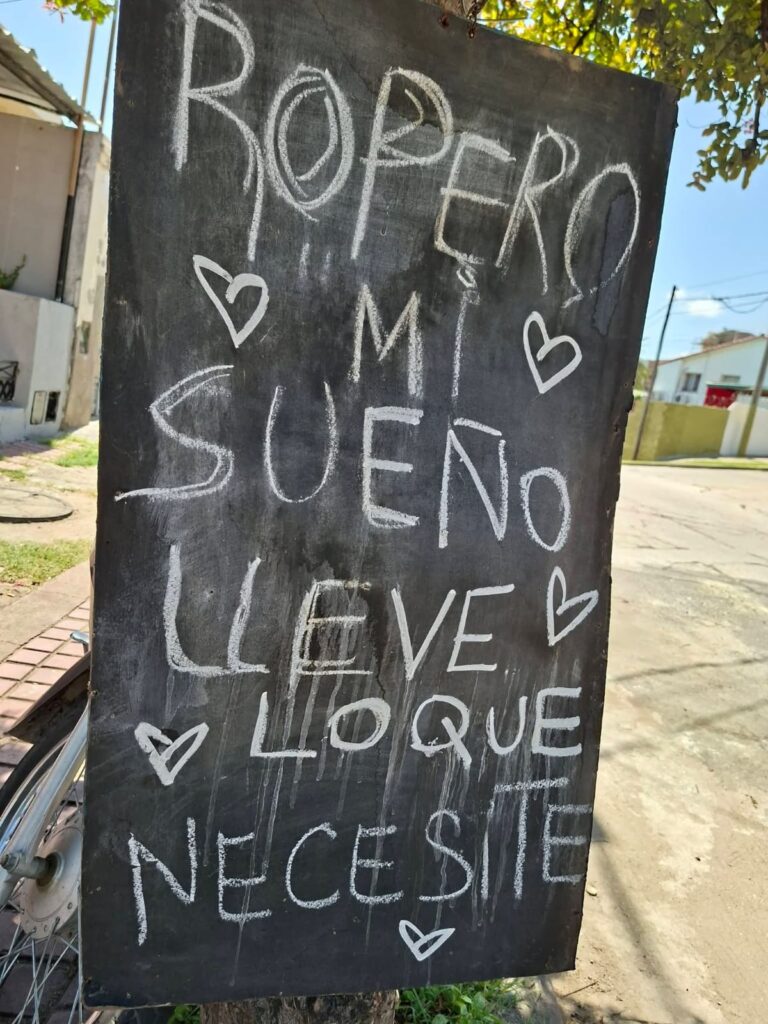 ROPERO
MI
SUEÑO
LLEVE
LO QUE
NECESITE